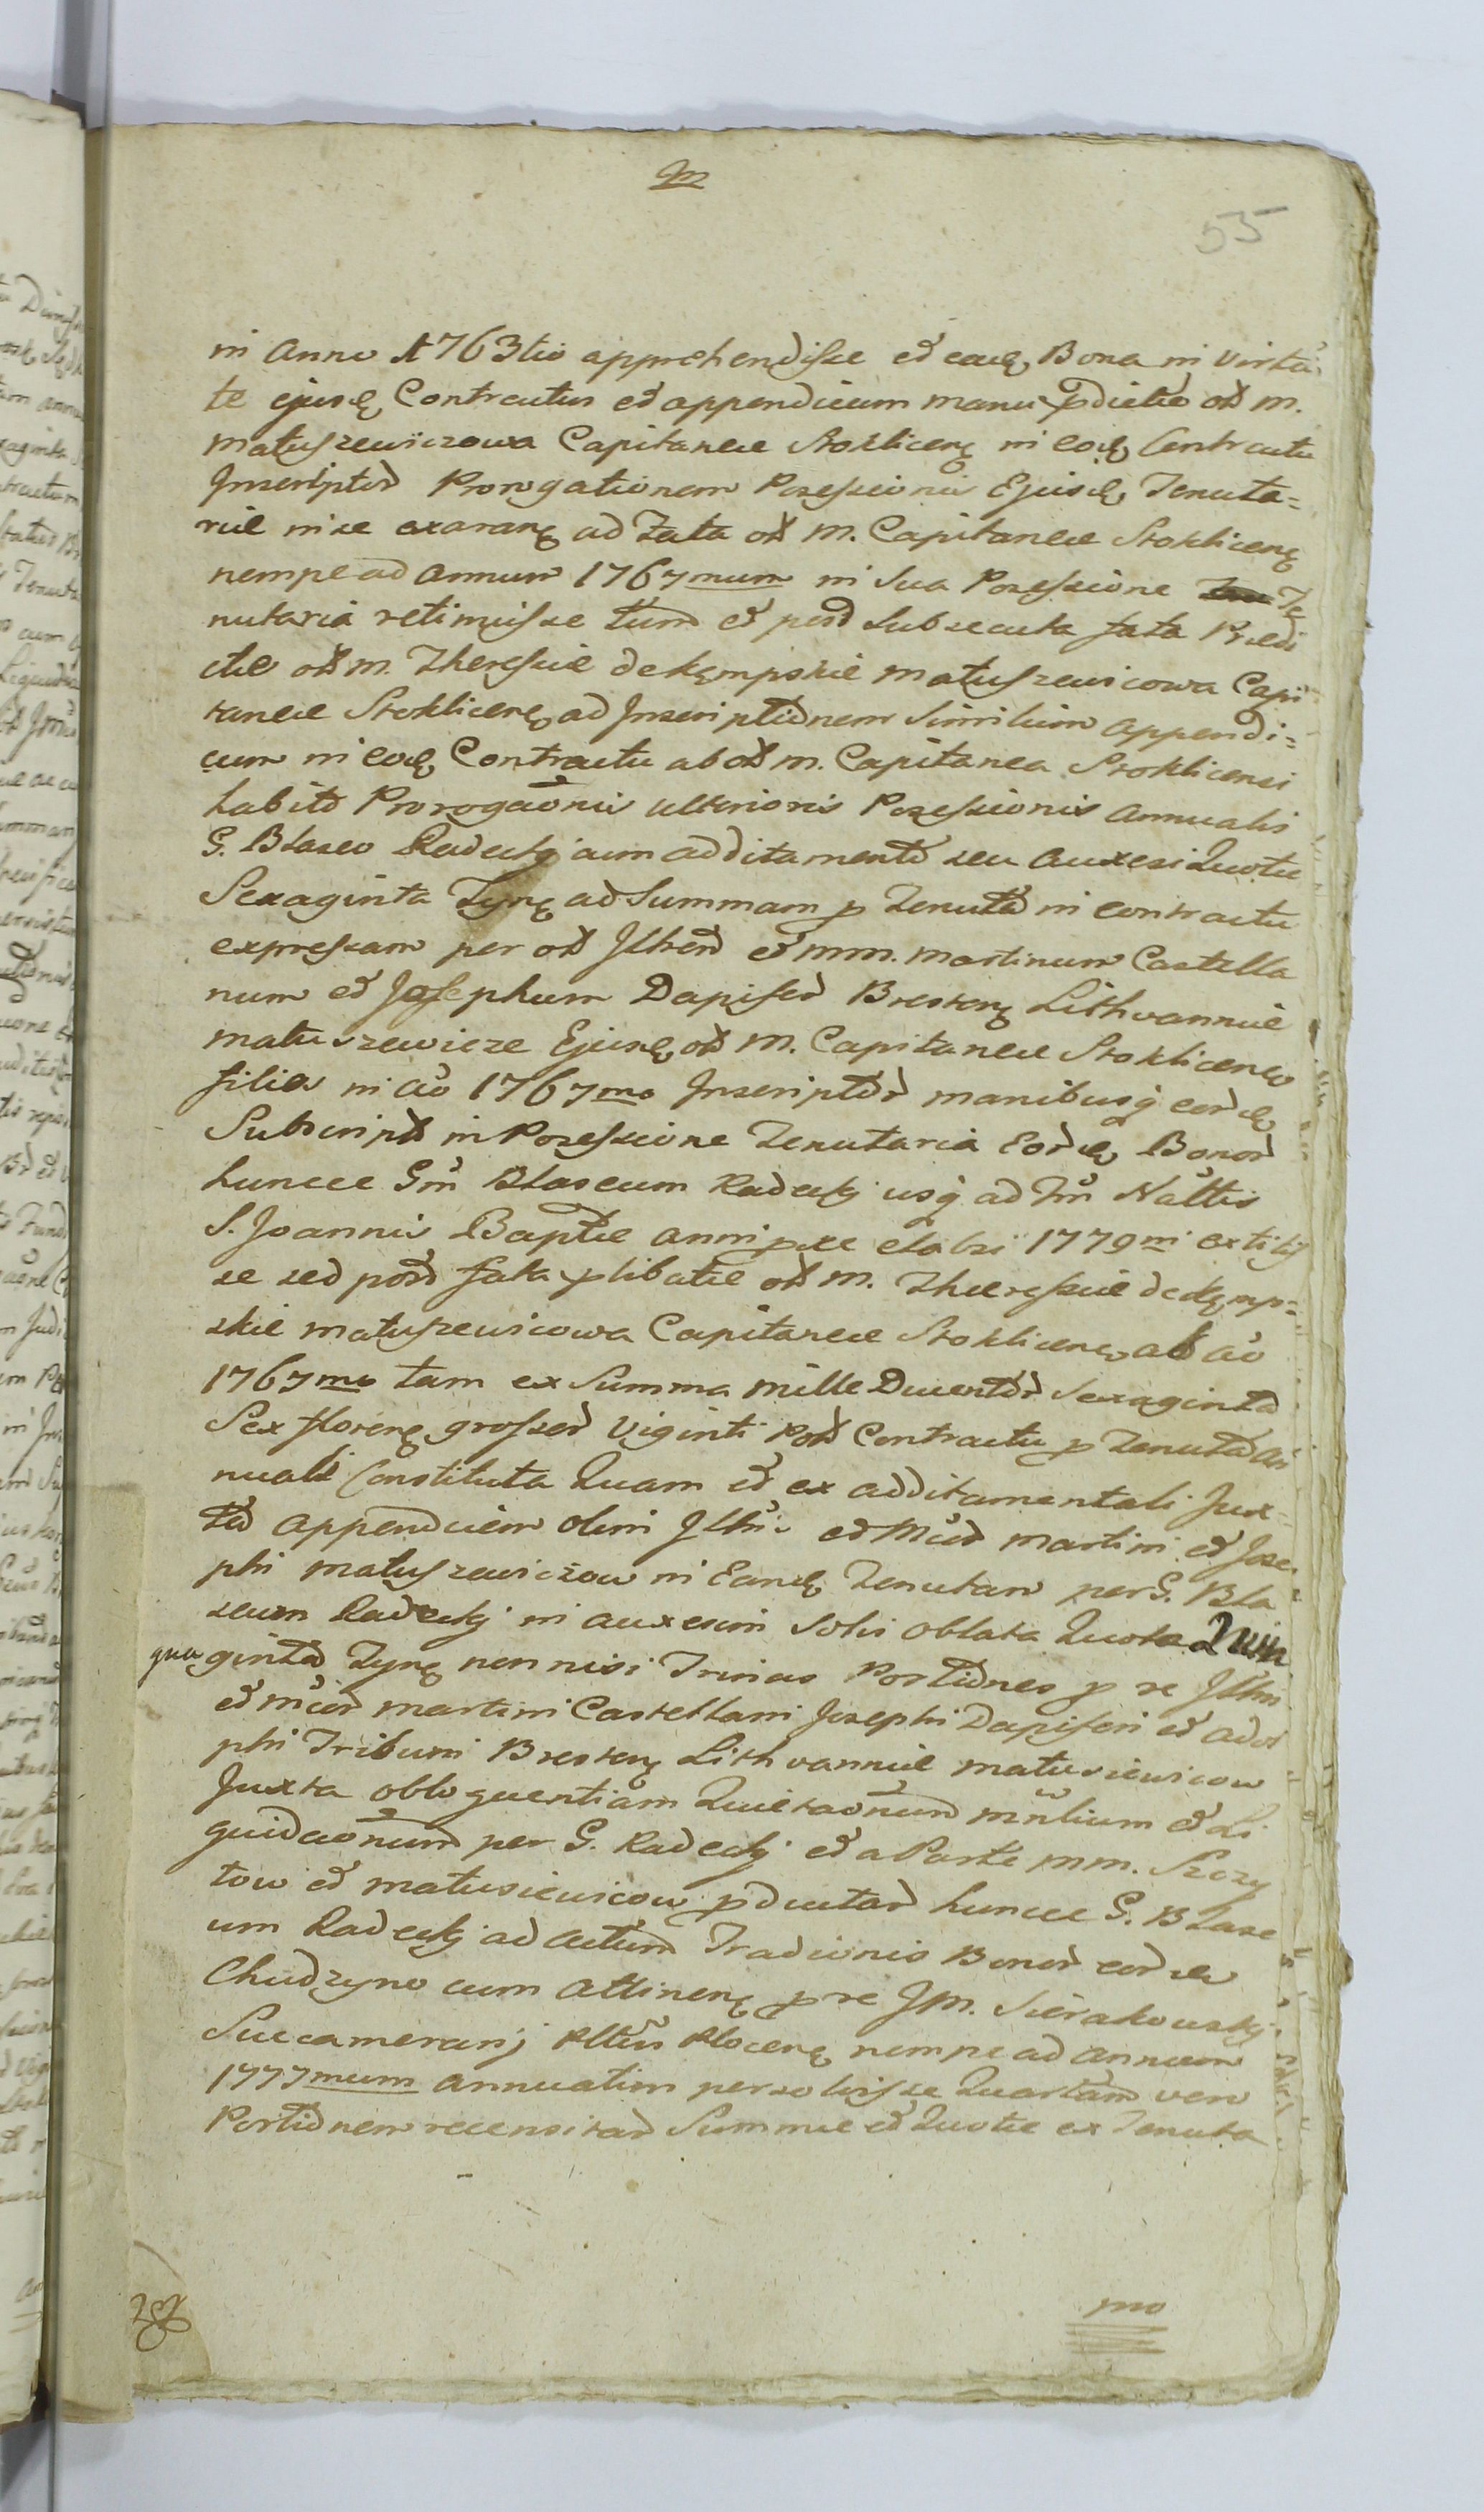 m
55
in Anno 1763tio apprehendisse et eadę Bona in Virtu
te ejusdę Contractus et appendicum manu pdictæ olt M.
Matuszewiczowa Capitaneæ Stoklicenę in eodę Contractu
Inscriptar Prorogationem Possessionis Ejusdę Tenuta=
riæ in se exaranę ad Fata olt M. Capitaneæ Stoklicenę
nempe ad Annum 1767mum in Sua Possessione Te
nutaria retinuisse tum et post Subsecuta fata Prædi
ctæ olt M. Theressiæ de Kęmpskie Matuszewicowa Capi
taneæ Stoklicenę ad Inscriptionem Similium Appendi=
cum in eodę Contractu ab olt M. Capitanea Stoklicensi
habito Prorogaonis ulterioris Possessionis Annualis
G. Blaseo Radecky cum additamento seu Auxesi Quotæ
Sexaginta Tynę ad Summam p Tenuta in contractu
expressam per olt Illren et MM. Martinum Castella
num et Josephum Dapifer Brestenę Lithvanniæ
Matuszewicze Ejusdę olt M. Capitaneæ Stoklicenę
filios in Ao 1767mo Inscriptor manibusq eordę
Subscript in Possessione Tenutaria Eordę Bonor
huncce Gm Blaseum Radecky usq ad Fm Nattis
S. Joannis Baptæ anni pxe elabsi 1779ni extitis
se sed post fata plibatæ olt M. Theeressiæ de Kęmp=
skie Matuszewicowa Capitaneæ Stoklicenę ab Ao
1767mo tam ex Summa Mille Ducentor Sexaginta
Sex florenę grosser Viginti Post Contractu p Tenuta an
nuali Constituta Quam et ex additamentali Jux=
ta Appendicem olim Illris et Mcor Martini et Jose
phi Matuszewiczow in Eandę Tenutam per G. Bla
seum Radecky in auxesim Solis oblata Quota Quin
quaginta Tynę non nisi Trinas Portiones p se Illm
et Mcor Martini Castellani Josephi Dapiferi et Adol
phi Tribuni Brestenę Lithvanniæ Matusiewicow
Juxta obloquentiam Quietaonum Mnlium et Li
quidaonum per G. Radecky et a Parte MM. Szczy
tow et Matusiewicow pductar huncce G. Blase
um Radecky ad Actum Tradicionis Bonor eordę
Chudzyno cum Attinenę p se JM. Sierakowsky
Succamerarij Pltus Plocenę nempe ad Annum
1777mum annuatim persolvisse Quartam vero
Portionem recensitar Summæ et Quotæ ex Tenuta
mo